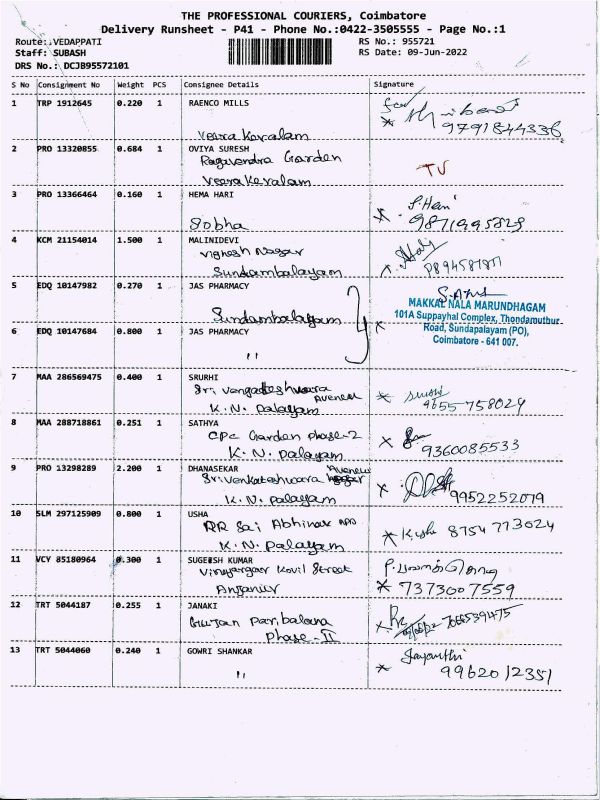 THE PROFESSIONAL COURIERS, Coimbatore
Delivery Runsheet - P41 - Phone No.:0422-3505555 - Page No.:1
Route: VEDAPPATI RS No.: 955721
Staff: SUBASH RS Date: 09-Jun-2022
DRS No.: DCJB95572101
S No Consignment No Weight PCS Consignee Details Signature
1 TRP 1912645 0.220 1 RAENCO MILLS
Veera Keralam 9791844336
2 PRO 13320855 0.684 1 OVIYA SURESH
Ragavendra Garden
Veerakeralam
3 PRO 13366464 0.160 1 HEMA HARI
Sobha 9871995829
4 KCM 21154014 1.500 1 MALINIDEVI
Vignesh Nagar
Sundambalayam
5 EDQ 10147982 0.270 1 JAS PHARMACY
Sundambalayam
MAKKAL NALA MARUNDHAGAM
101A Suppayhal Complex, Thondamuthur
Road, Sundapalayam (PO),
Coimbatore - 641 007.
6 EDQ 10147684 0.800 1 JAS PHARMACY
"
7 MAA 286569475 0.400 1 SRURHI
Sri Vengateshwara Avenew
K. N. Palayam 9655758029
8 MAA 288718861 0.251 1 SATHYA
CPC Garden Phase-2
K. N. Palayam 9360085533
9 PRO 13298289 2.200 1 DHANASEKAR
Sri Venkateshwara Avenew
K. N. Palayam 9952252079
10 SLM 297125909 0.800 1 USHA
RR Sai Abhinav
K. N. Palayam 8754713024
11 VCY 85180964 0.300 1 SUGEESH KUMAR
Kovil Street
7373007559
12 TRT 5044187 0.255 1 JANAKI
Phase - II 7065391475
13 TRT 5044060 0.240 1 GOWRI SHANKAR
" Jayanthi
9962012351